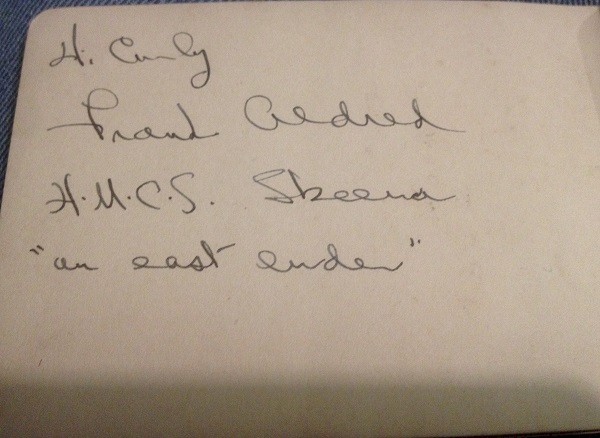 Hi Curly
Frank Aldred
H.M.C.S. Skeena
"an east ender"